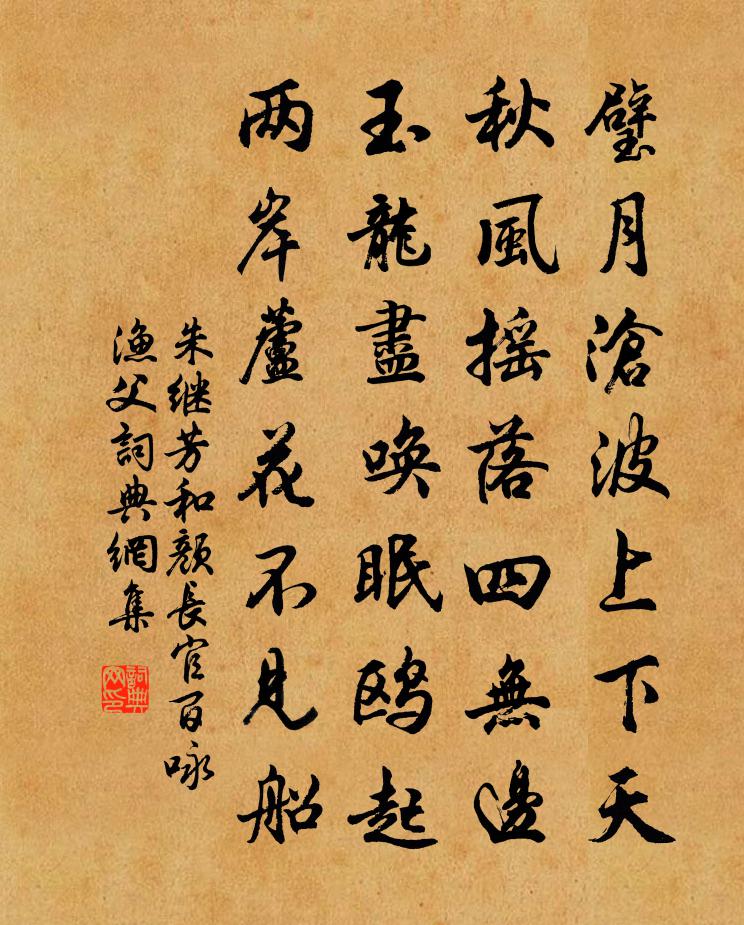 璧月滄波上下天
秋風摇落四無邊
玉龍盡唤眠鸥起
两岸蘆花不見船
朱继芳和颜長官百咏
漁父詞典網集
詞典网印